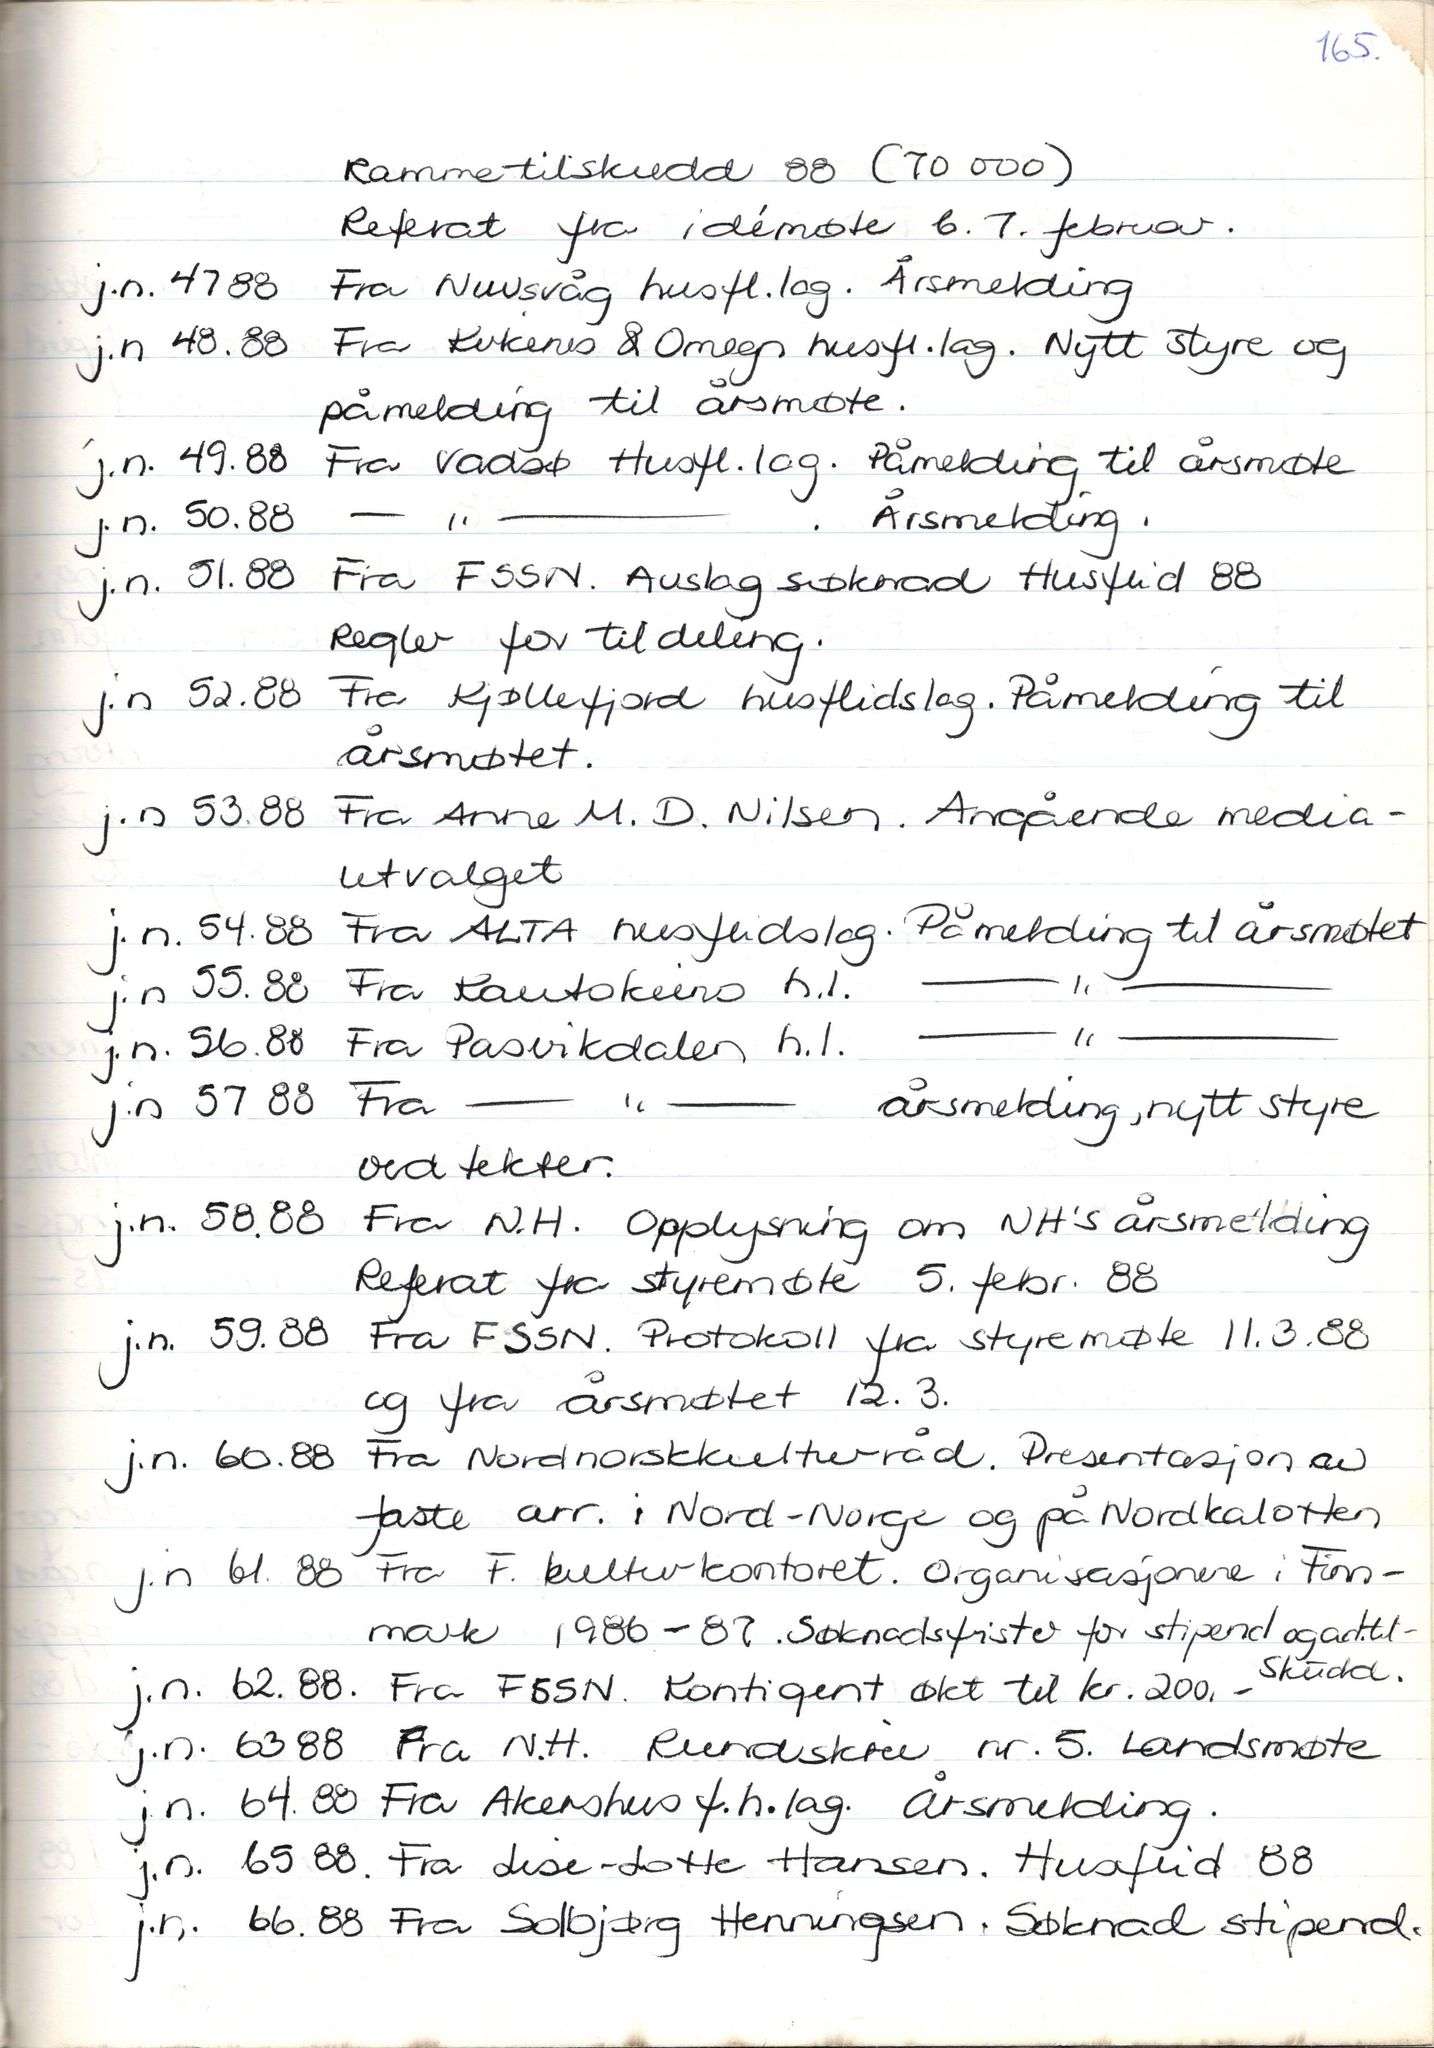 165.
Rammetilskudd 88 (70 000)
Referat fra idémøte 6. 7. februar.
j.n. 47 88 Fra Nuvsvåg husfl.lag. Årsmelding
j.n 48.88 Fra Kirkenes & Omegn husfl.lag. Nytt styre og
påmelding til årsmøte.
j.n. 49.88 Fra Vadsø Husfl.lag. Påmelding til årsmøte
j.n. 50.88 — " — . Årsmelding.
j.n. 51.88 Fra FSSN. Avslag søknad Husflid 88
Regler for tildeling.
j.n 52.88 Fra Kjøllefjord husflidslag. Påmelding til
årsmøtet.
j.n 53.88 Fra Anne M. D. Nilsen. Angående media-
utvalget
j.n. 54.88 Fra ALTA husflidslag. Påmelding til årsmøtet
j.n 55.88 Fra Kautokeino h.l. — " —
j.n. 56.88 Fra Pasvikdalen h.l. — " —
j.n 57 88 Fra — " — årsmelding, nytt styre
vedtekter.
j.n. 58.88 Fra N.H. Opplysning om NH's årsmelding
Referat fra styremøte 5. febr. 88
j.n. 59.88 Fra FSSN. Protokoll fra styremøte 11.3.88
og fra årsmøtet 12.3.
j.n. 60.88 Fra Nordnorskkulturråd. Presentasjon av
faste arr. i Nord-Norge og på Nordkalotten
j.n 61. 88 Fra F. kulturkontoret. Organisasjonene i Finn-
mark 1986-87. Søknadsfrister for stipend og ad.til-
skudd.
j.n. 62.88. Fra FSSN. Kontigent økt til kr. 200,-
j.n. 63 88 Fra N.H. Rundskriv nr. 5. Landsmøte
j.n. 64.88 Fra Akershus f.h.lag. Årsmelding.
j.n. 65 88. Fra Lise-Lotte Hansen. Husflid 88
j.n. 66.88 Fra Solbjørg Henningsen. Søknad stipend.